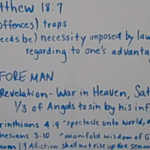 tthew 18:7
offences) traps
eeds be) necessity imposed by law
regarding to one's advanta
FORE MAN
Revelation - War in Heaven, Sat
1/3 of Angels to sin by his inf
rinthians 4:9 "spectacle unto world, a
hesians 3:10 "manifold wisdom of G
shall not rise up the second